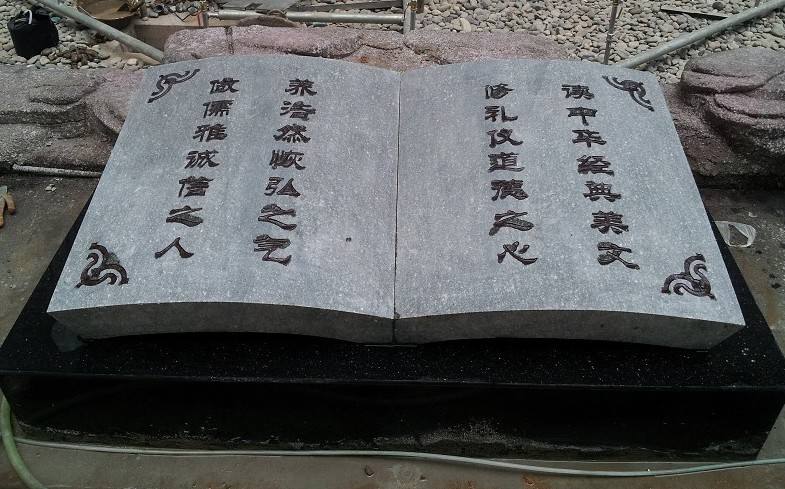 读中华经典美文
修礼仪道德之心
养浩然恢弘之气
做儒雅诚信之人